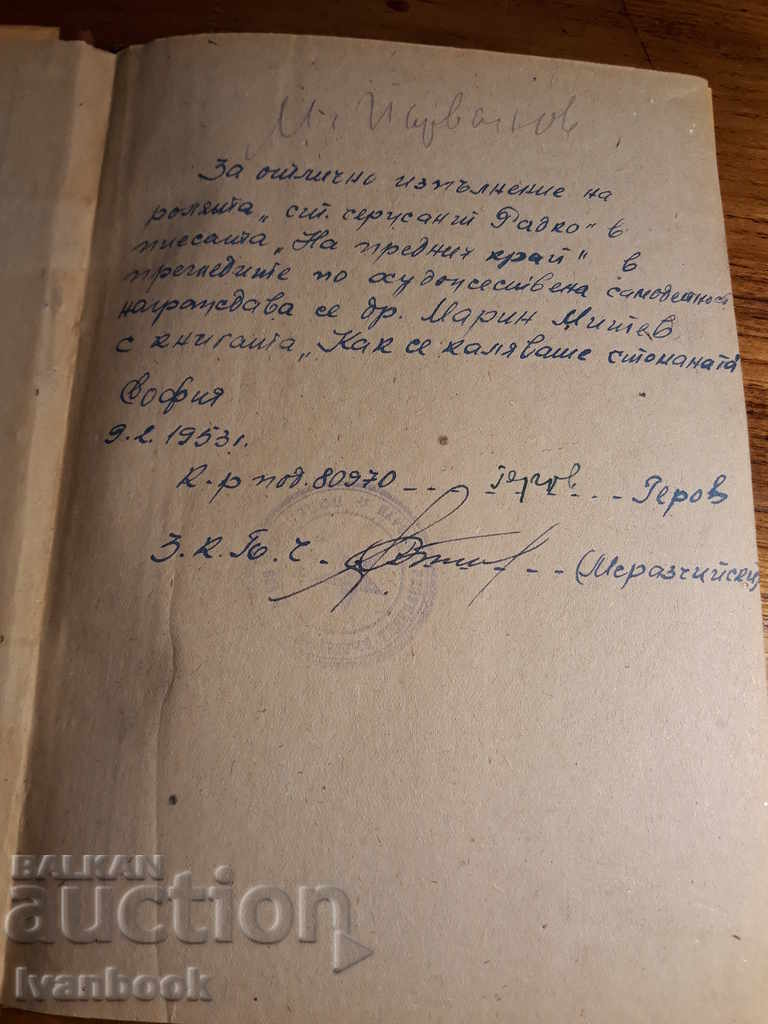 М. Първанов
За отлично изпълнение на
ролята „ст. сержант Радко" в
пиесата „На предния край" в
прегледите по художествена самодейност
награждава се др. Марин Митев
с книгата „Как се каляваше стоманата"
София
9.2.1953г.
К-р под. 80970 --- Геров --- Геров
З.К.П.Ч - --- (Меразчийски)
BALKAN
auction
Ivanbook